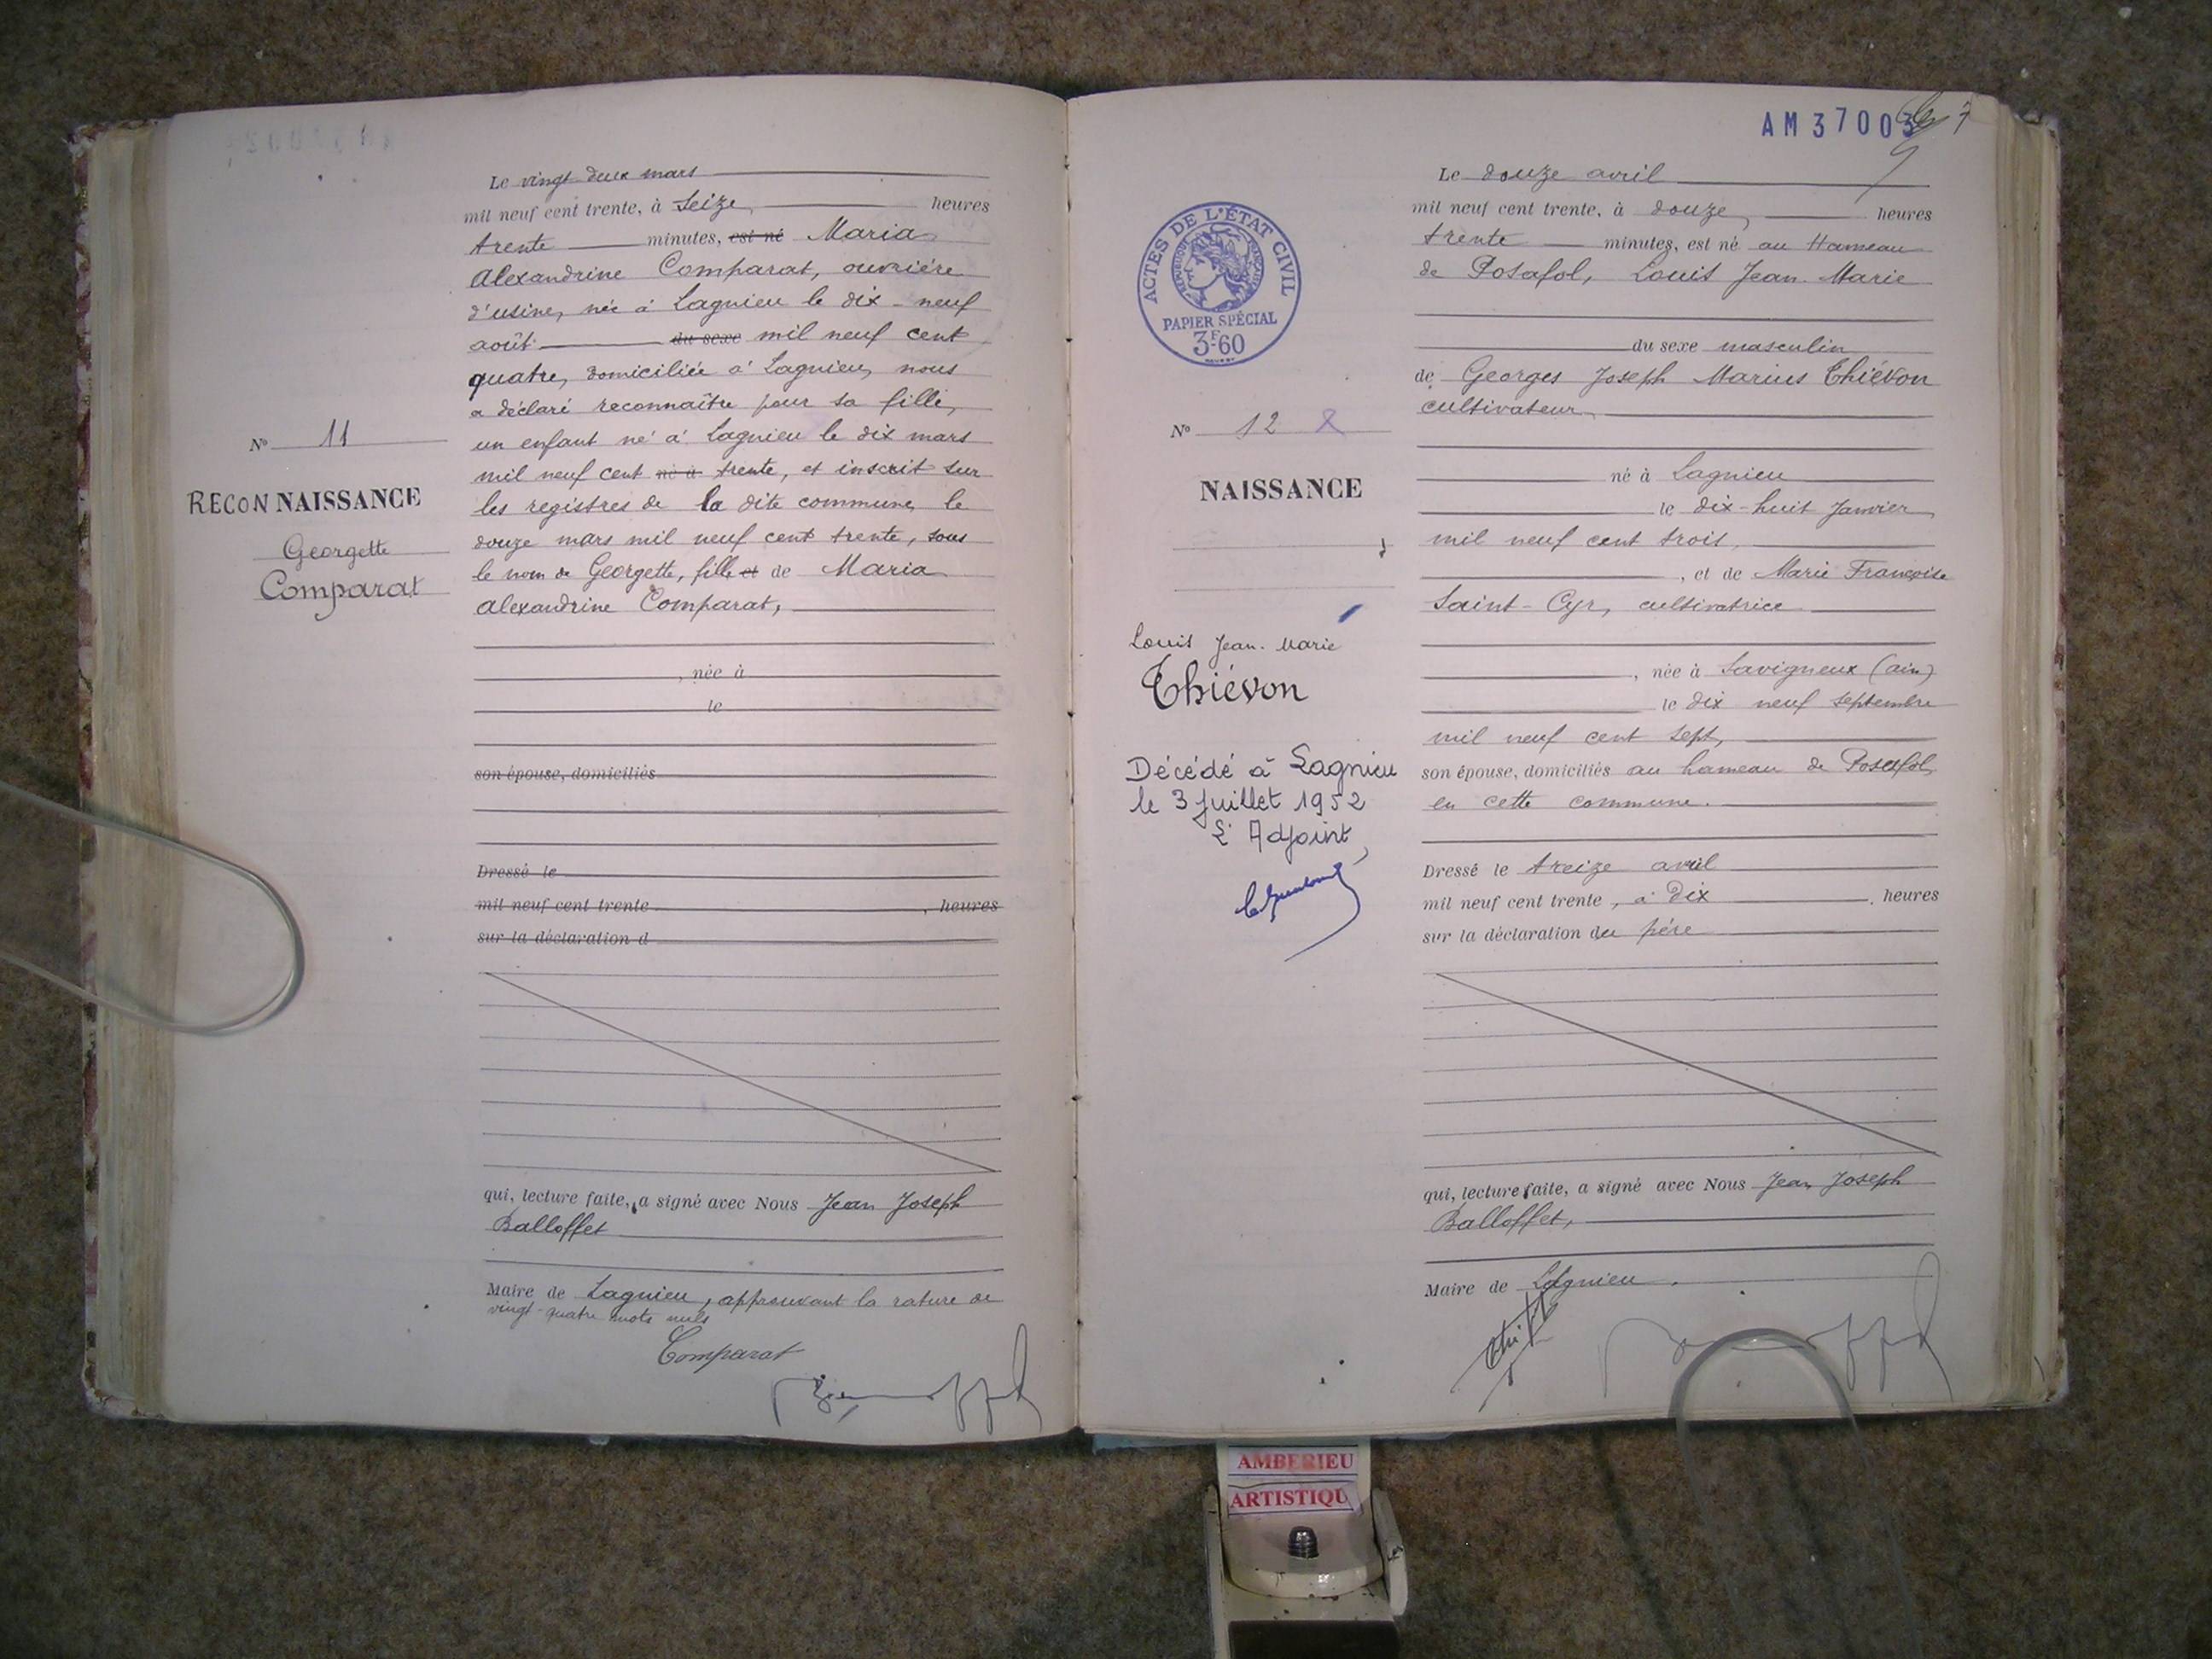 Le vingt deux mars
mil neuf cent trente, à Seize, heures
trente minutes, est né Maria
Alexandrine Comparat, ouvrière
d'usine, née à Lagnieu le dix-neuf
août du sexe mil neuf cent
quatre, domiciliée à Lagnieu, nous
a déclaré reconnaître pour sa fille,
un enfant né à Lagnieu le dix mars
mil neuf cent né à trente, et inscrit sur
les registres de la dite commune, le
douze mars mil neuf cent trente, sous
le nom de Georgette, fille et de Maria
Alexandrine Comparat,
, née à
le
son épouse, domiciliés
Dressé le
mil neuf cent trente , heures
sur la déclaration d
qui, lecture faite, a signé avec Nous Jean Joseph
Balloffet
Maire de Lagnieu, approuvant la rature de
vingt-quatre mots nuls
Comparat
N° 11
RECONNAISSANCE
Georgette
Comparat
AM 37003
7
ACTES DE L'ÉTAT CIVIL
RÉPUBLIQUE FRANÇAISE
PAPIER SPÉCIAL
3F60
N° 12
NAISSANCE
Louis Jean-Marie
Thiévon
Décédé à Lagnieu
le 3 Juillet 1952
L'Adjoint,
Le douze avril
mil neuf cent trente, à douze, heures
trente minutes, est né au Hameau
de Posafol, Louis Jean-Marie
du sexe masculin
de Georges Joseph Marius Thiévon
cultivateur,
né à Lagnieu
le dix-huit Janvier
mil neuf cent trois,
, et de Marie Françoise
Saint-Cyr, cultivatrice
, née à Savigneux (ain)
le dix neuf septembre
mil neuf cent sept,
son épouse, domiciliés au hameau de Posafol,
en cette commune.
Dressé le treize avril
mil neuf cent trente, à Dix , heures
sur la déclaration du père
qui, lecture faite, a signé avec Nous Jean Joseph
Balloffet,
Maire de Lagnieu.
AMBERIEU
ARTISTIQU